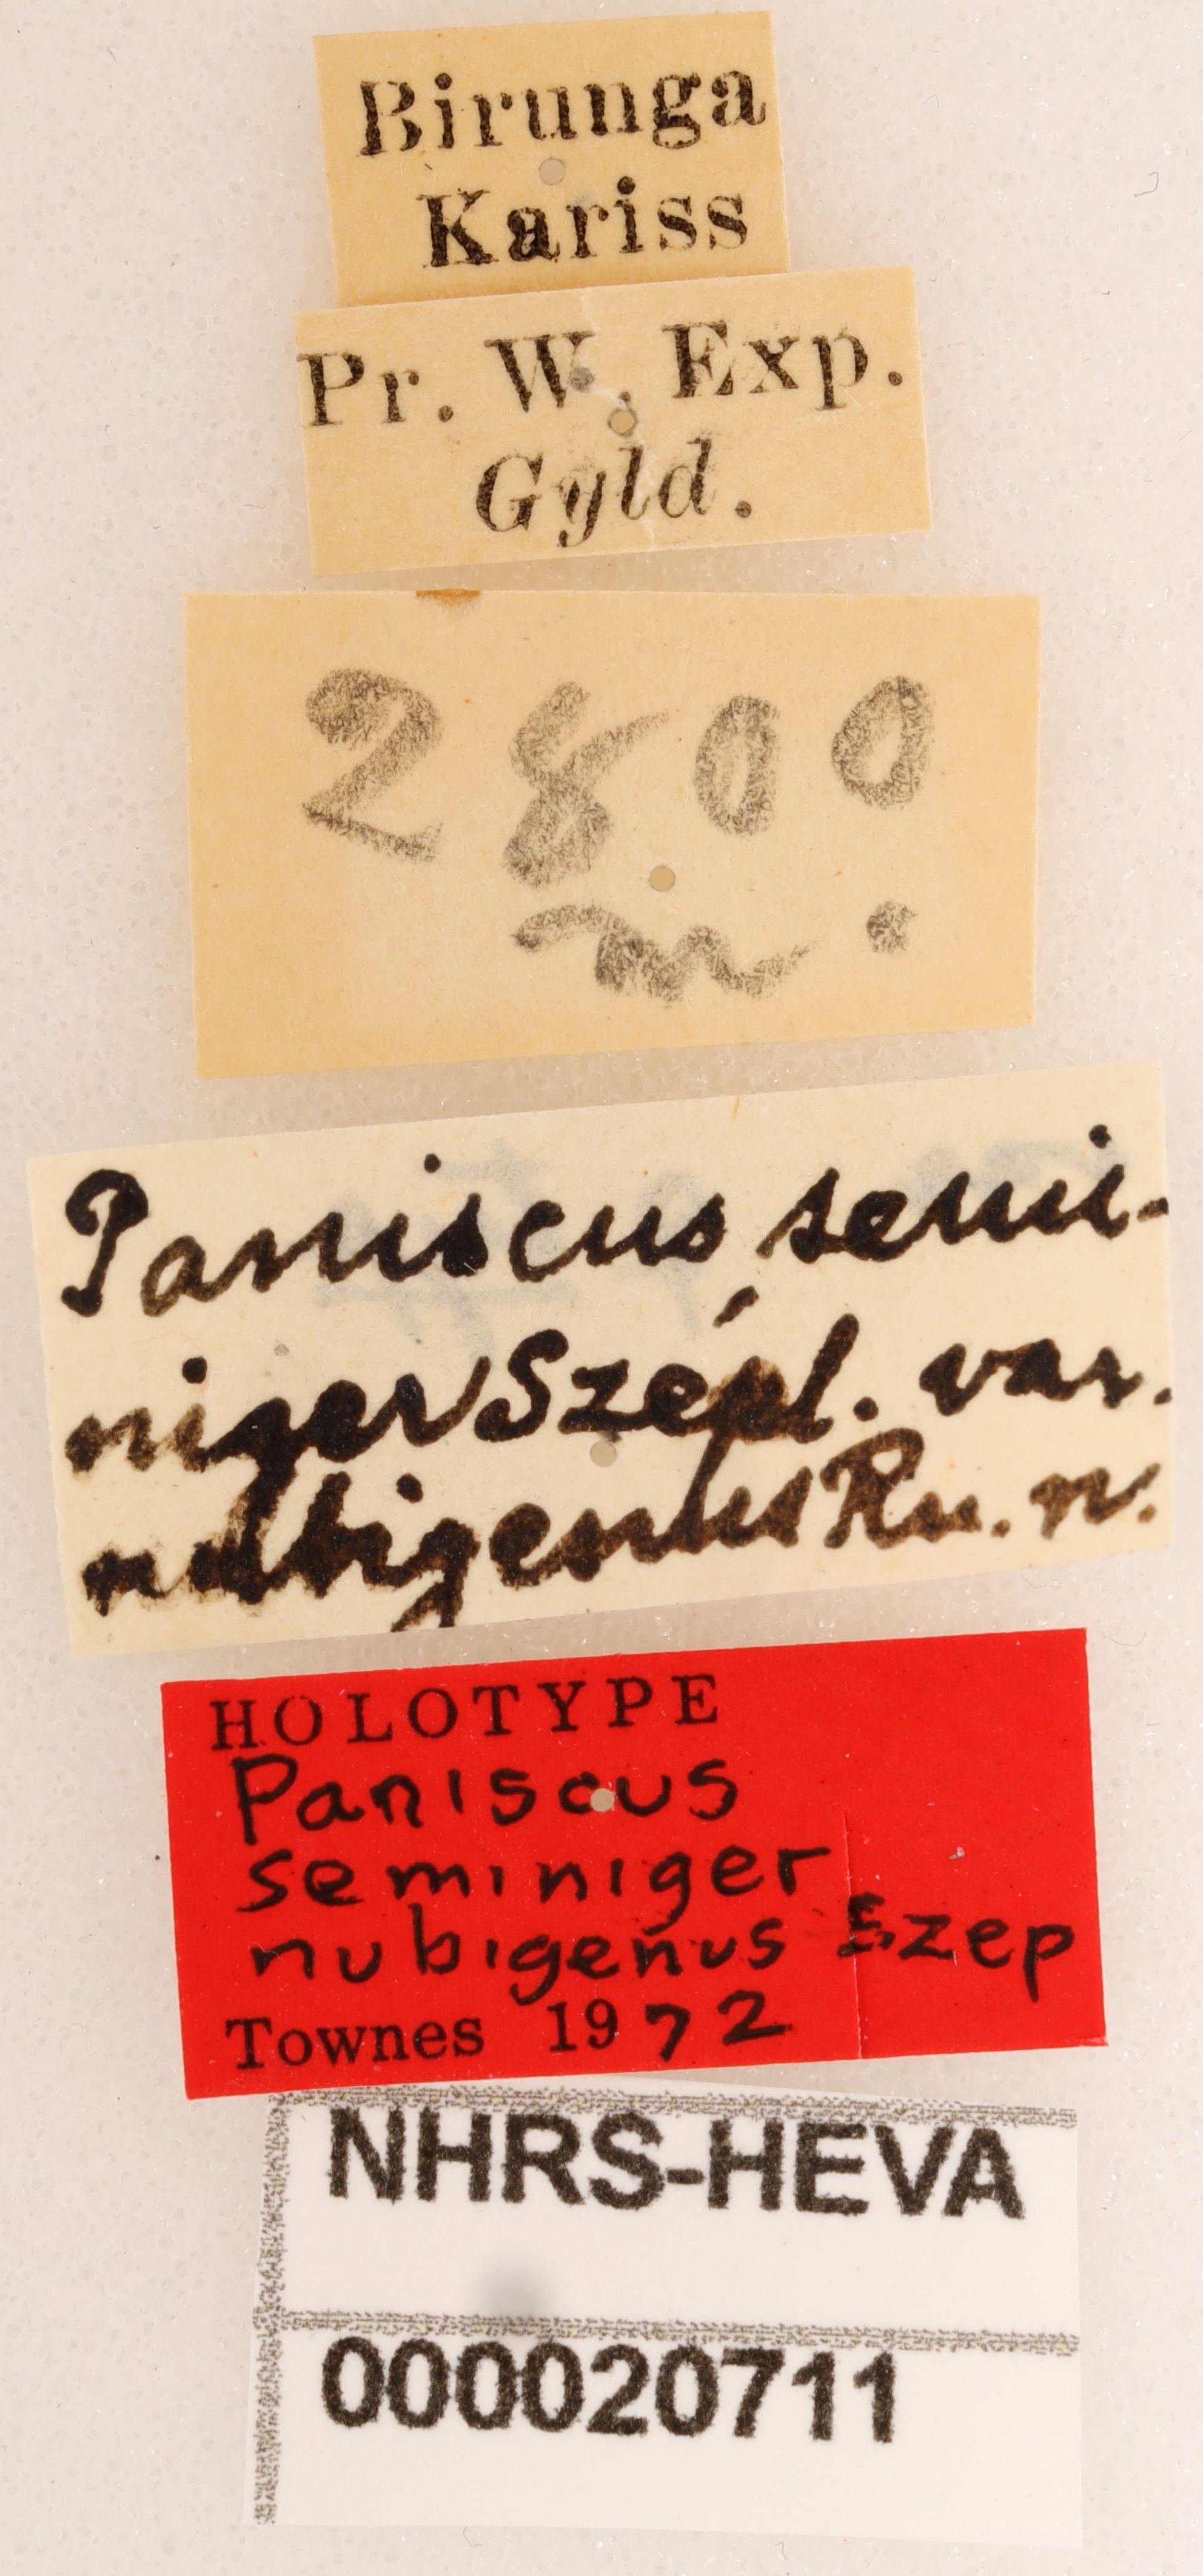 Birunga
Kariss
Pr. W. Exp.
Gyld.
2800
m.
Paniscus semi-
niger Szépl. var.
nubigenus Rn. n.
HOLOTYPE
Paniscus
seminiger
nubigenus Szep
Townes 1972
NHRS-HEVA
000020711